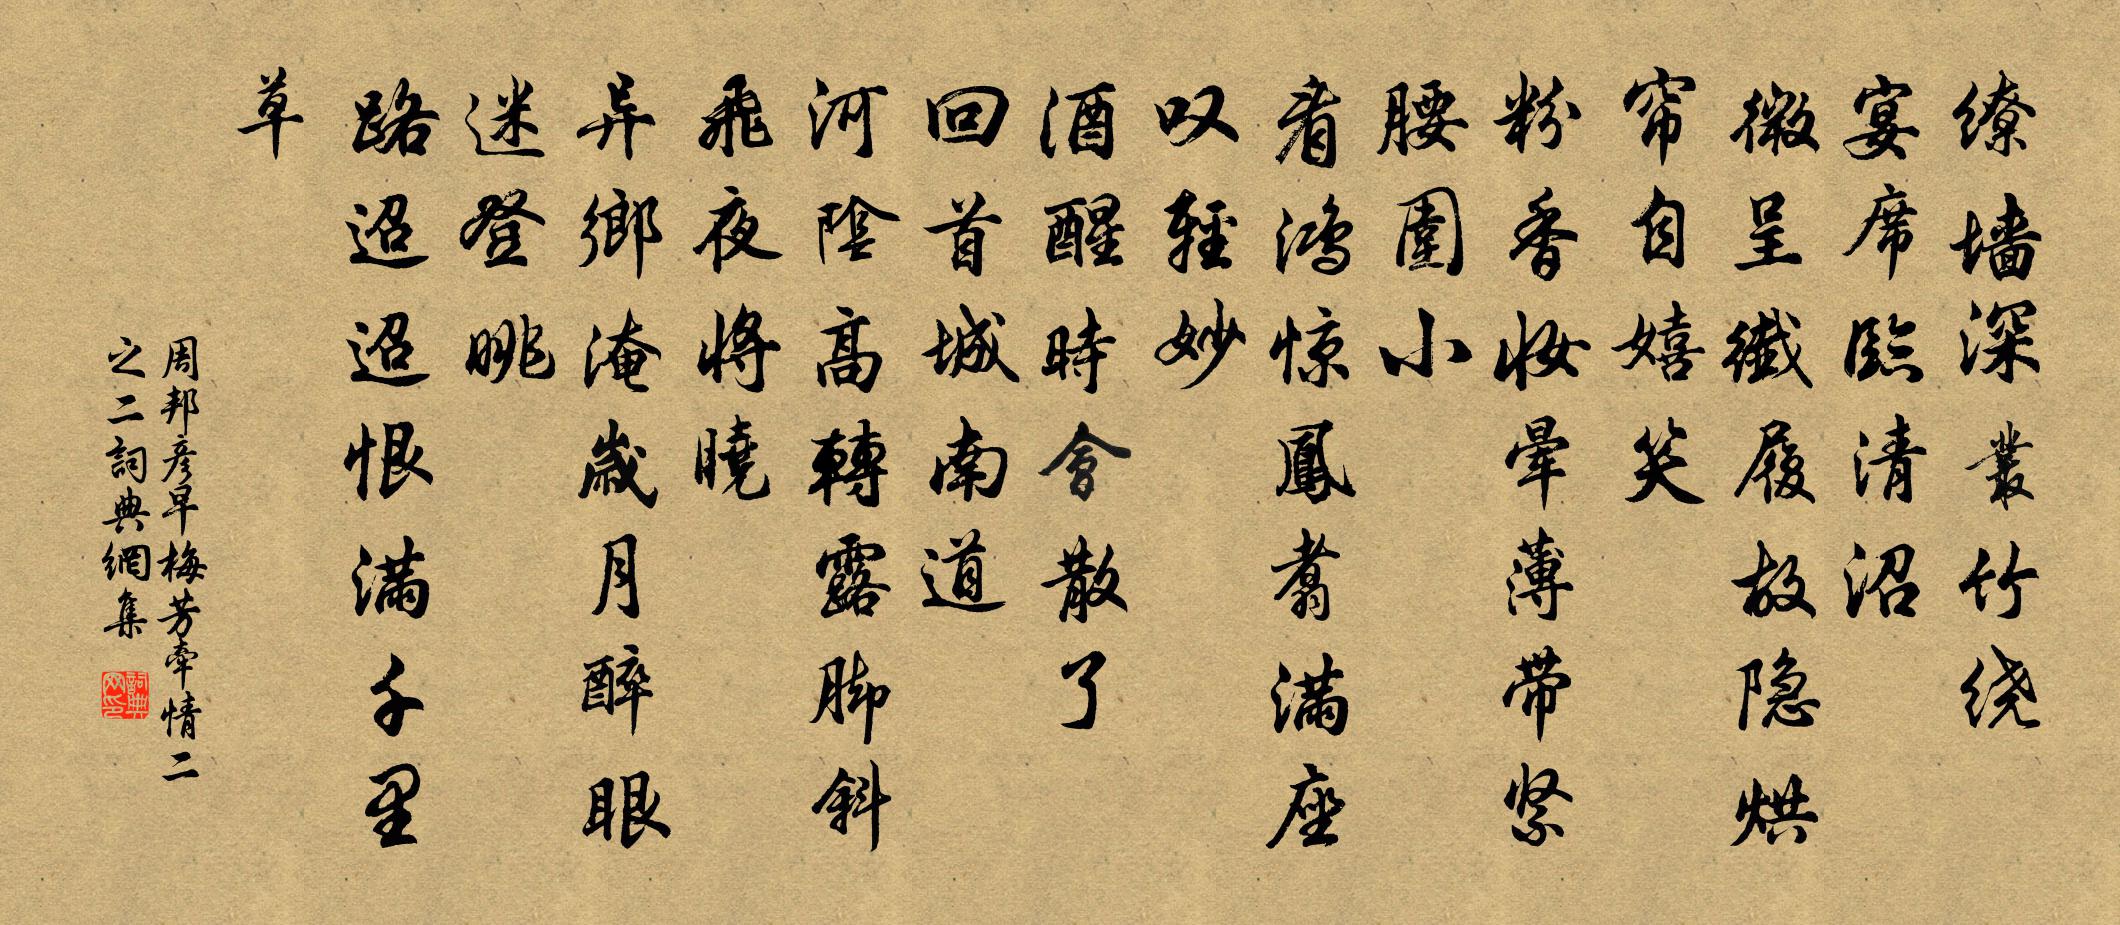 缭墙深叢竹绕
宴席臨清沼
微呈纖履故隐烘
帘自嬉笑
粉香妆晕薄带紧
腰圍小
看鸿惊鳳翥满座
叹輕妙
酒醒時會散了
回首城南道
河陰高轉露脚斜
飛夜将曉
异鄉淹歲月醉眼
迷登眺
路迢迢恨满千里
草
周邦彦早梅芳牵情二
之二詞典網集
詞典网印